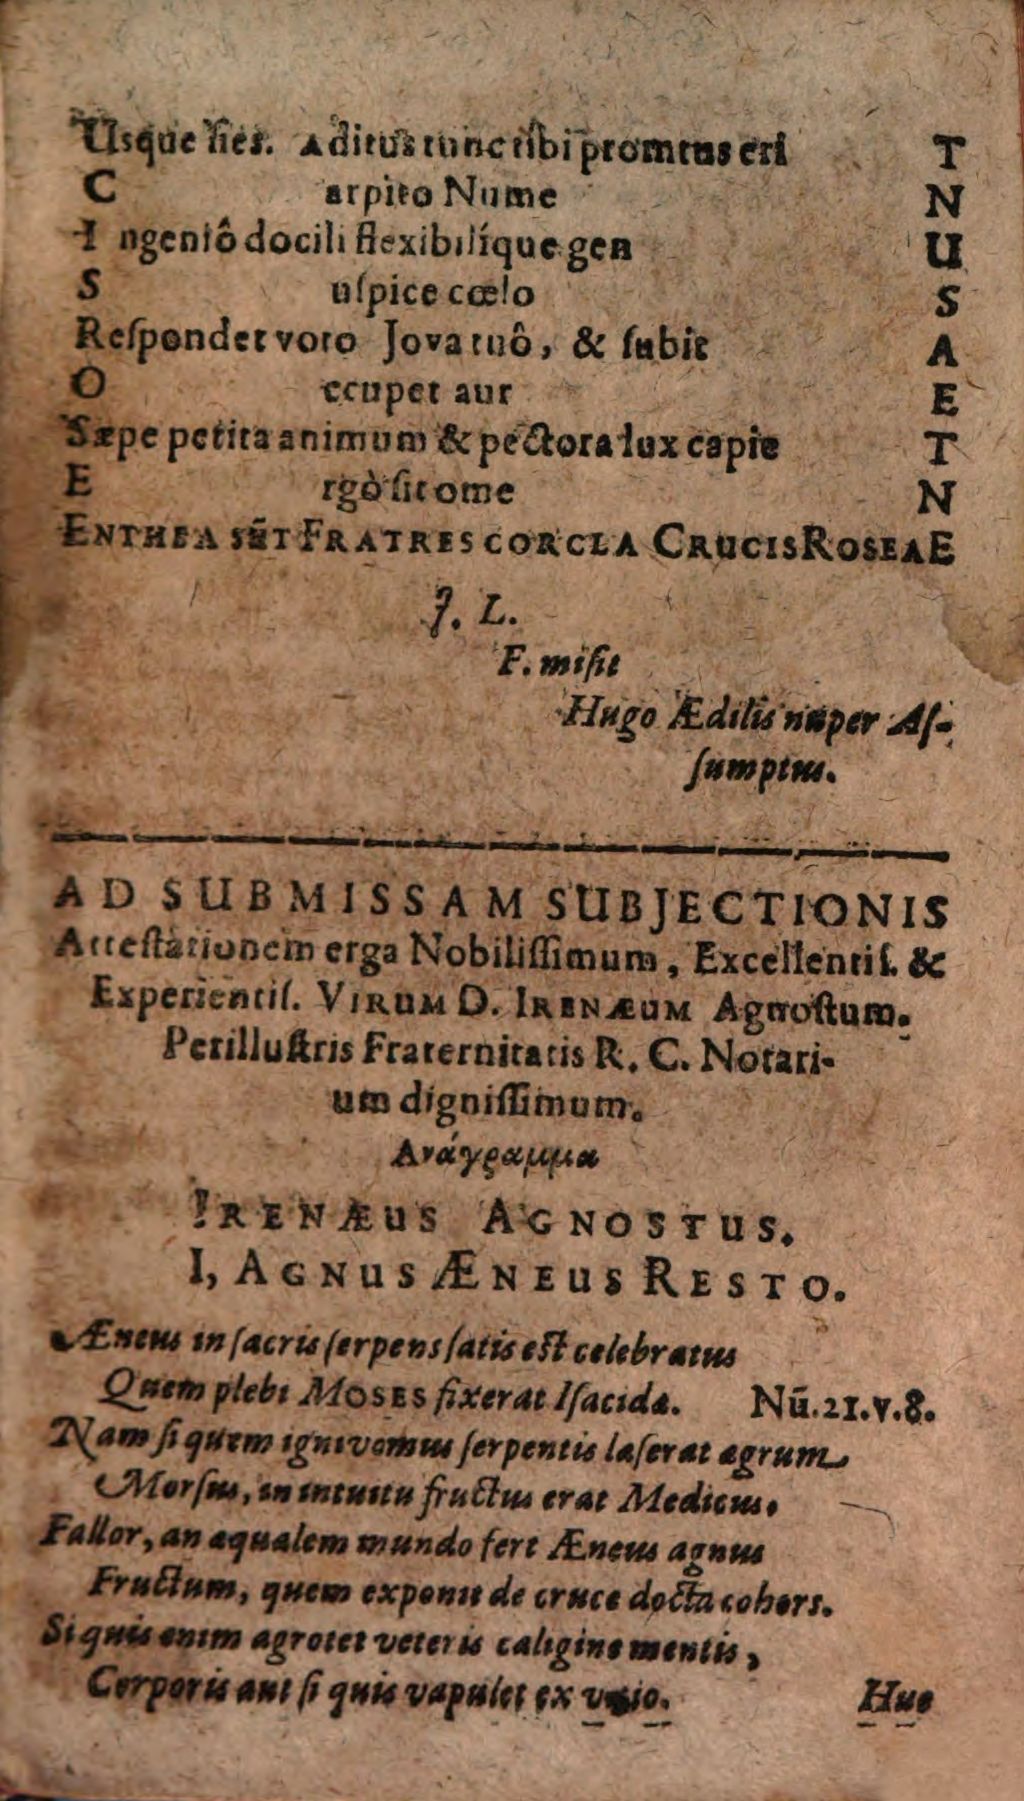 Usque sies. Aditus tunc tibi promtus eri T
C arpito Nume N
I ngeniô docili flexibilíque gen U
S uſpice cœlo S
Reſpondet voto Jova tuô, & ſubit A
O ccupet aur E
Sæpe petita animum & pectora lux capie T
E rgò ſit ome N
ENTHEA sūt FRATRES CORCLA CRUCIS ROSEAE
J. L.
F. miſit
Hugo Ædilis nuper Aſ-
ſumptus.
AD SUBMISSAM SUBJECTIONIS
Atteſtationem erga Nobiliſſimum, Excellentiſ. &
Experientiſ. VIRUM D. IRENÆUM Agnoſtum.
Perilluſtris Fraternitatis R. C. Notari-
um digniſſimum.
Ανάγραμμα
IRENÆUS AGNOSTUS.
I, AGNUS ÆNEUS RESTO.
Æneus in ſacris ſerpens ſatis eſt celebratus
Quem plebi MOSES fixerat Iſacidæ. Nū.21.v.8.
Nam ſi quem ignivomus ſerpentis læſerat ægrum
Morſus, in intuitu fructus erat Medicus.
Fallor, an æqualem mundo fert Æneus agnus
Fructum, quem exponit de cruce docta cohors.
Si quis enim ægrotet veteris caligine mentis,
Corporis aut ſi quis vapulet ex vitio.
Huc